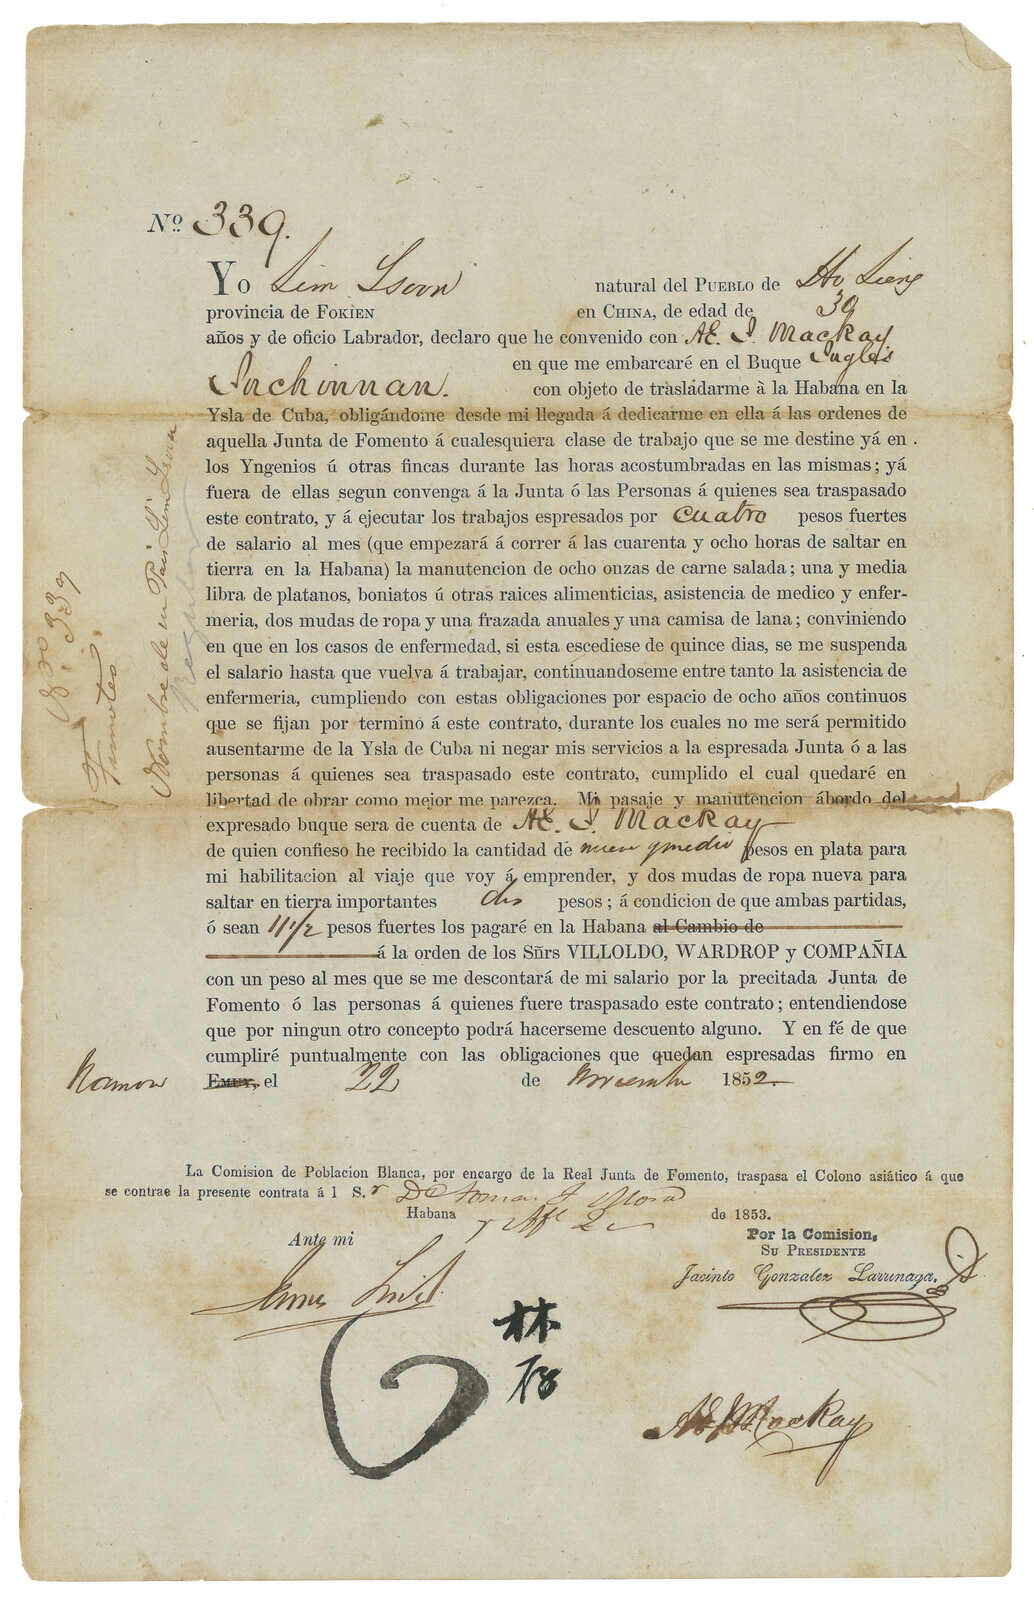 Nº 339.
Yo Lim Tsoon natural del PUEBLO de Ho Lieng
provincia de FOKIEN en CHINA, de edad de 39
años y de oficio Labrador, declaro que he convenido con Æ. J. Mackay
en que me embarcaré en el Buque Ingles
Inchinnan. con objeto de trasladarme à la Habana en la
Ysla de Cuba, obligándome desde mi llegada á dedicarme en ella á las ordenes de
aquella Junta de Fomento á cualesquiera clase de trabajo que se me destine yá en
los Yngenios ú otras fincas durante las horas acostumbradas en las mismas; yá
fuera de ellas segun convenga á la Junta ó las Personas á quienes sea traspasado
este contrato, y á ejecutar los trabajos espresados por cuatro pesos fuertes
de salario al mes (que empezará á correr á las cuarenta y ocho horas de saltar en
tierra en la Habana) la manutencion de ocho onzas de carne salada; una y media
libra de platanos, boniatos ú otras raices alimenticias, asistencia de medico y enfer-
meria, dos mudas de ropa y una frazada anuales y una camisa de lana; conviniendo
en que en los casos de enfermedad, si esta escediese de quince dias, se me suspenda
el salario hasta que vuelva á trabajar, continuandoseme entre tanto la asistencia de
enfermeria, cumpliendo con estas obligaciones por espacio de ocho años continuos
que se fijan por terminó á este contrato, durante los cuales no me será permitido
ausentarme de la Ysla de Cuba ni negar mis servicios a la espresada Junta ó a las
personas á quienes sea traspasado este contrato, cumplido el cual quedaré en
libertad de obrar como mejor me parezca. Mi pasaje y manutencion ábordo del
expresado buque sera de cuenta de Æ. J. Mackay
de quien confieso he recibido la cantidad de nueve y medio pesos en plata para
mi habilitacion al viaje que voy á emprender, y dos mudas de ropa nueva para
saltar en tierra importantes dos pesos; á condicion de que ambas partidas,
ó sean 11 1/2 pesos fuertes los pagaré en la Habana al Cambio de
á la orden de los Sñrs VILLOLDO, WARDROP y COMPAÑIA
con un peso al mes que se me descontará de mi salario por la precitada Junta de
Fomento ó las personas á quienes fuere traspasado este contrato; entendiendose
que por ningun otro concepto podrá hacerseme descuento alguno. Y en fé de que
cumpliré puntualmente con las obligaciones que quedan espresadas firmo en
Namow EMUY, el 22 de Noviembre 1852.
La Comision de Poblacion Blanca, por encargo de la Real Junta de Fomento, traspasa el Colono asiático á que
se contrae la presente contrata á l S.r
Habana de 1853.
Ante mi
Por la Comision,
SU PRESIDENTE
Jacinto Gonzalez Larrinaga.
林
Æ J Mackay
Nº 339
Nombre de un Pais Lim Tsoon